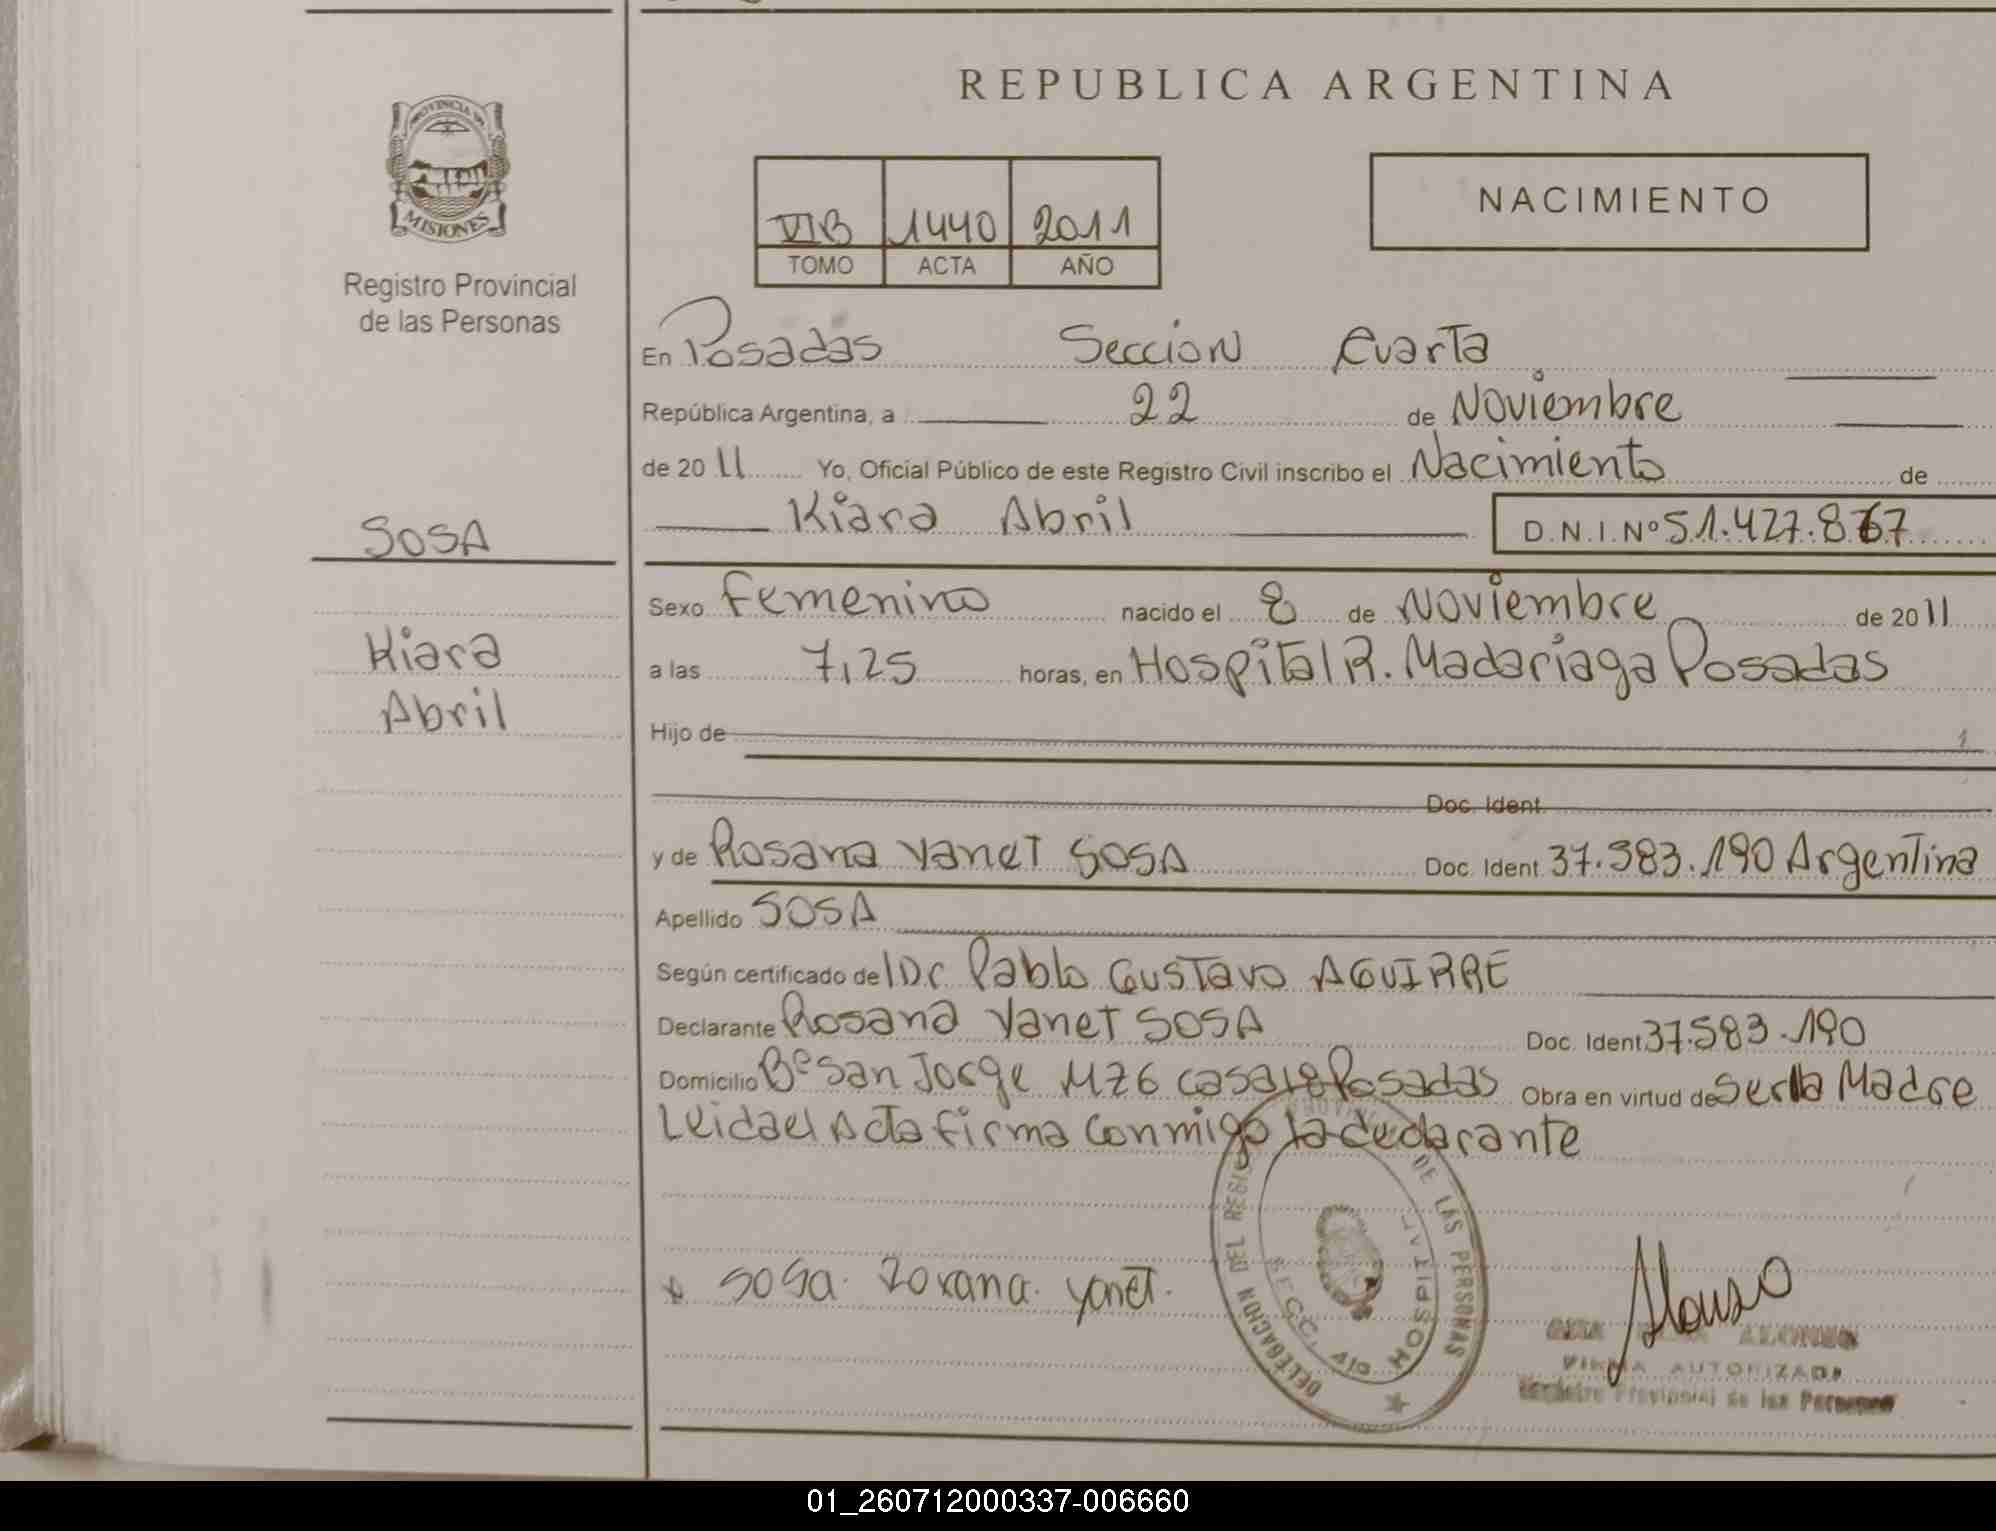 REPUBLICA ARGENTINA
PROVINCIA DE
MISIONES
Registro Provincial
de las Personas
NACIMIENTO
VIB 1440 2011
TOMO ACTA AÑO
En Posadas Seccion Cuarta
República Argentina, a 22 de Noviembre
de 2011 Yo, Oficial Público de este Registro Civil inscribo el Nacimiento de
Kiara Abril D.N.I.Nº 51.427.867
SOSA
Kiara
Abril
Sexo Femenino nacido el 8 de Noviembre de 2011
a las 7,25 horas, en Hospital R. Madariaga Posadas
Hijo de
Doc. Ident.
y de Rosana Yanet SOSA Doc. Ident. 37.583.190 Argentina
Apellido SOSA
Según certificado de l Dr Pablo Gustavo AGUIRRE
Declarante Rosana Yanet SOSA Doc. Ident 37.583.190
Domicilio Bº San Jorge MZ6 casa Posadas Obra en virtud de Ser la Madre
Leida el Acta firma Conmigo la declarante
Sosa. Roxana. Yanet.
DELEGACION DEL REGISTRO PROVINCIAL DE LAS PERSONAS
HOSPITAL
SECC. 4ta
Alonso
ALONSO
FIRMA AUTORIZADA
Registro Provincial de las Personas
01_260712000337-006660